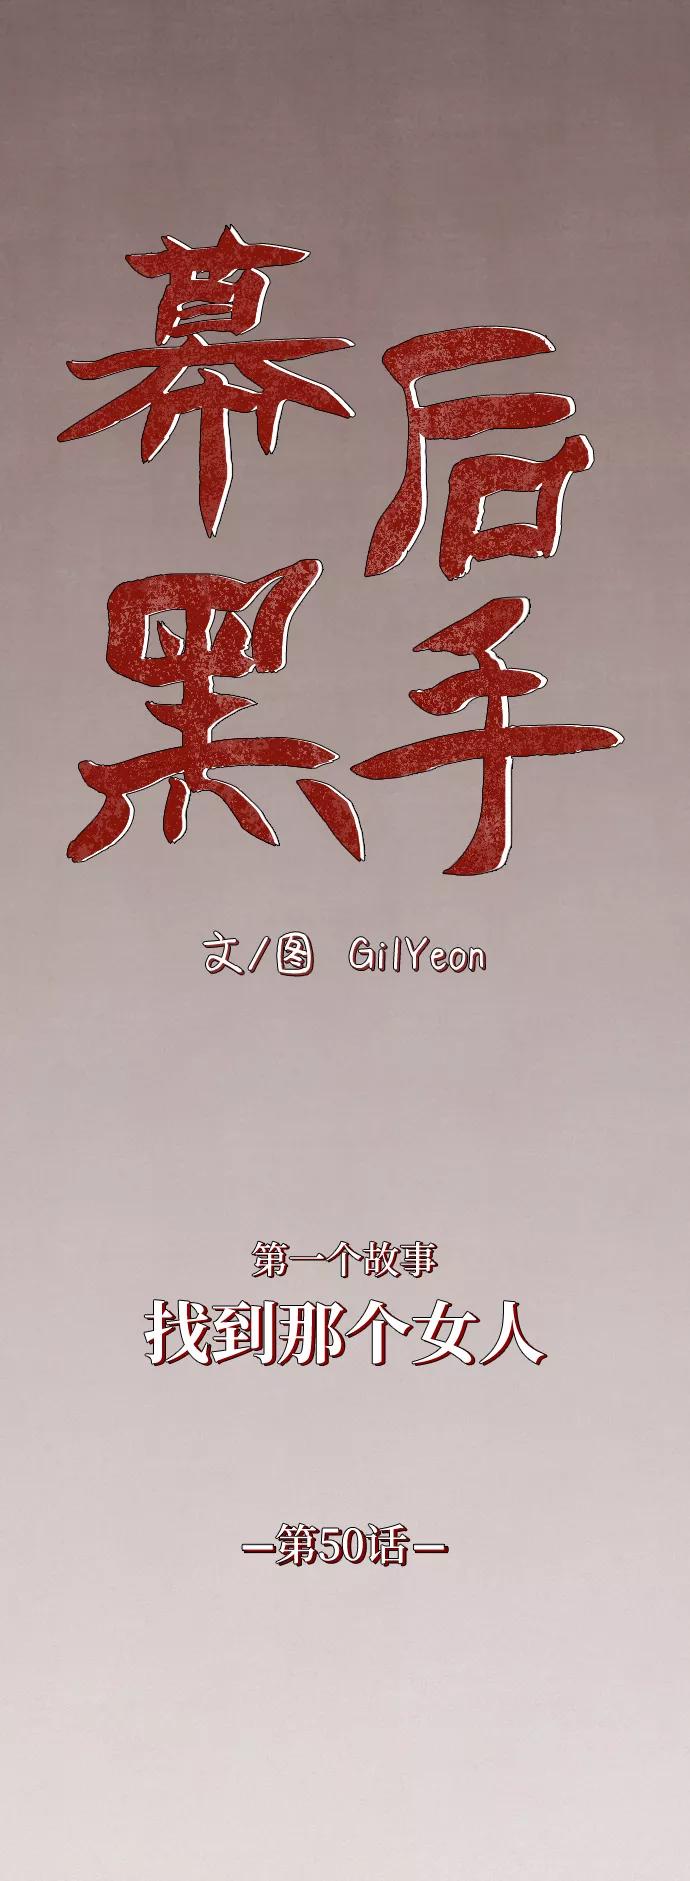 幕后
黑手
文/图 GilYeon
第一个故事
找到那个女人
—第50话—